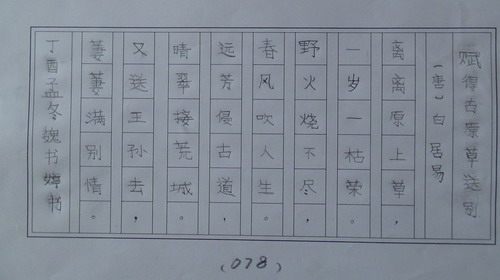 赋得古原草送别
(唐)白居易
离离原上草,
一岁一枯荣。
野火烧不尽,
春风吹人生。
远芳侵古道,
晴翠接荒城。
又送王孙去,
萋萋满别情。
丁酉孟冬魏书书
(078)